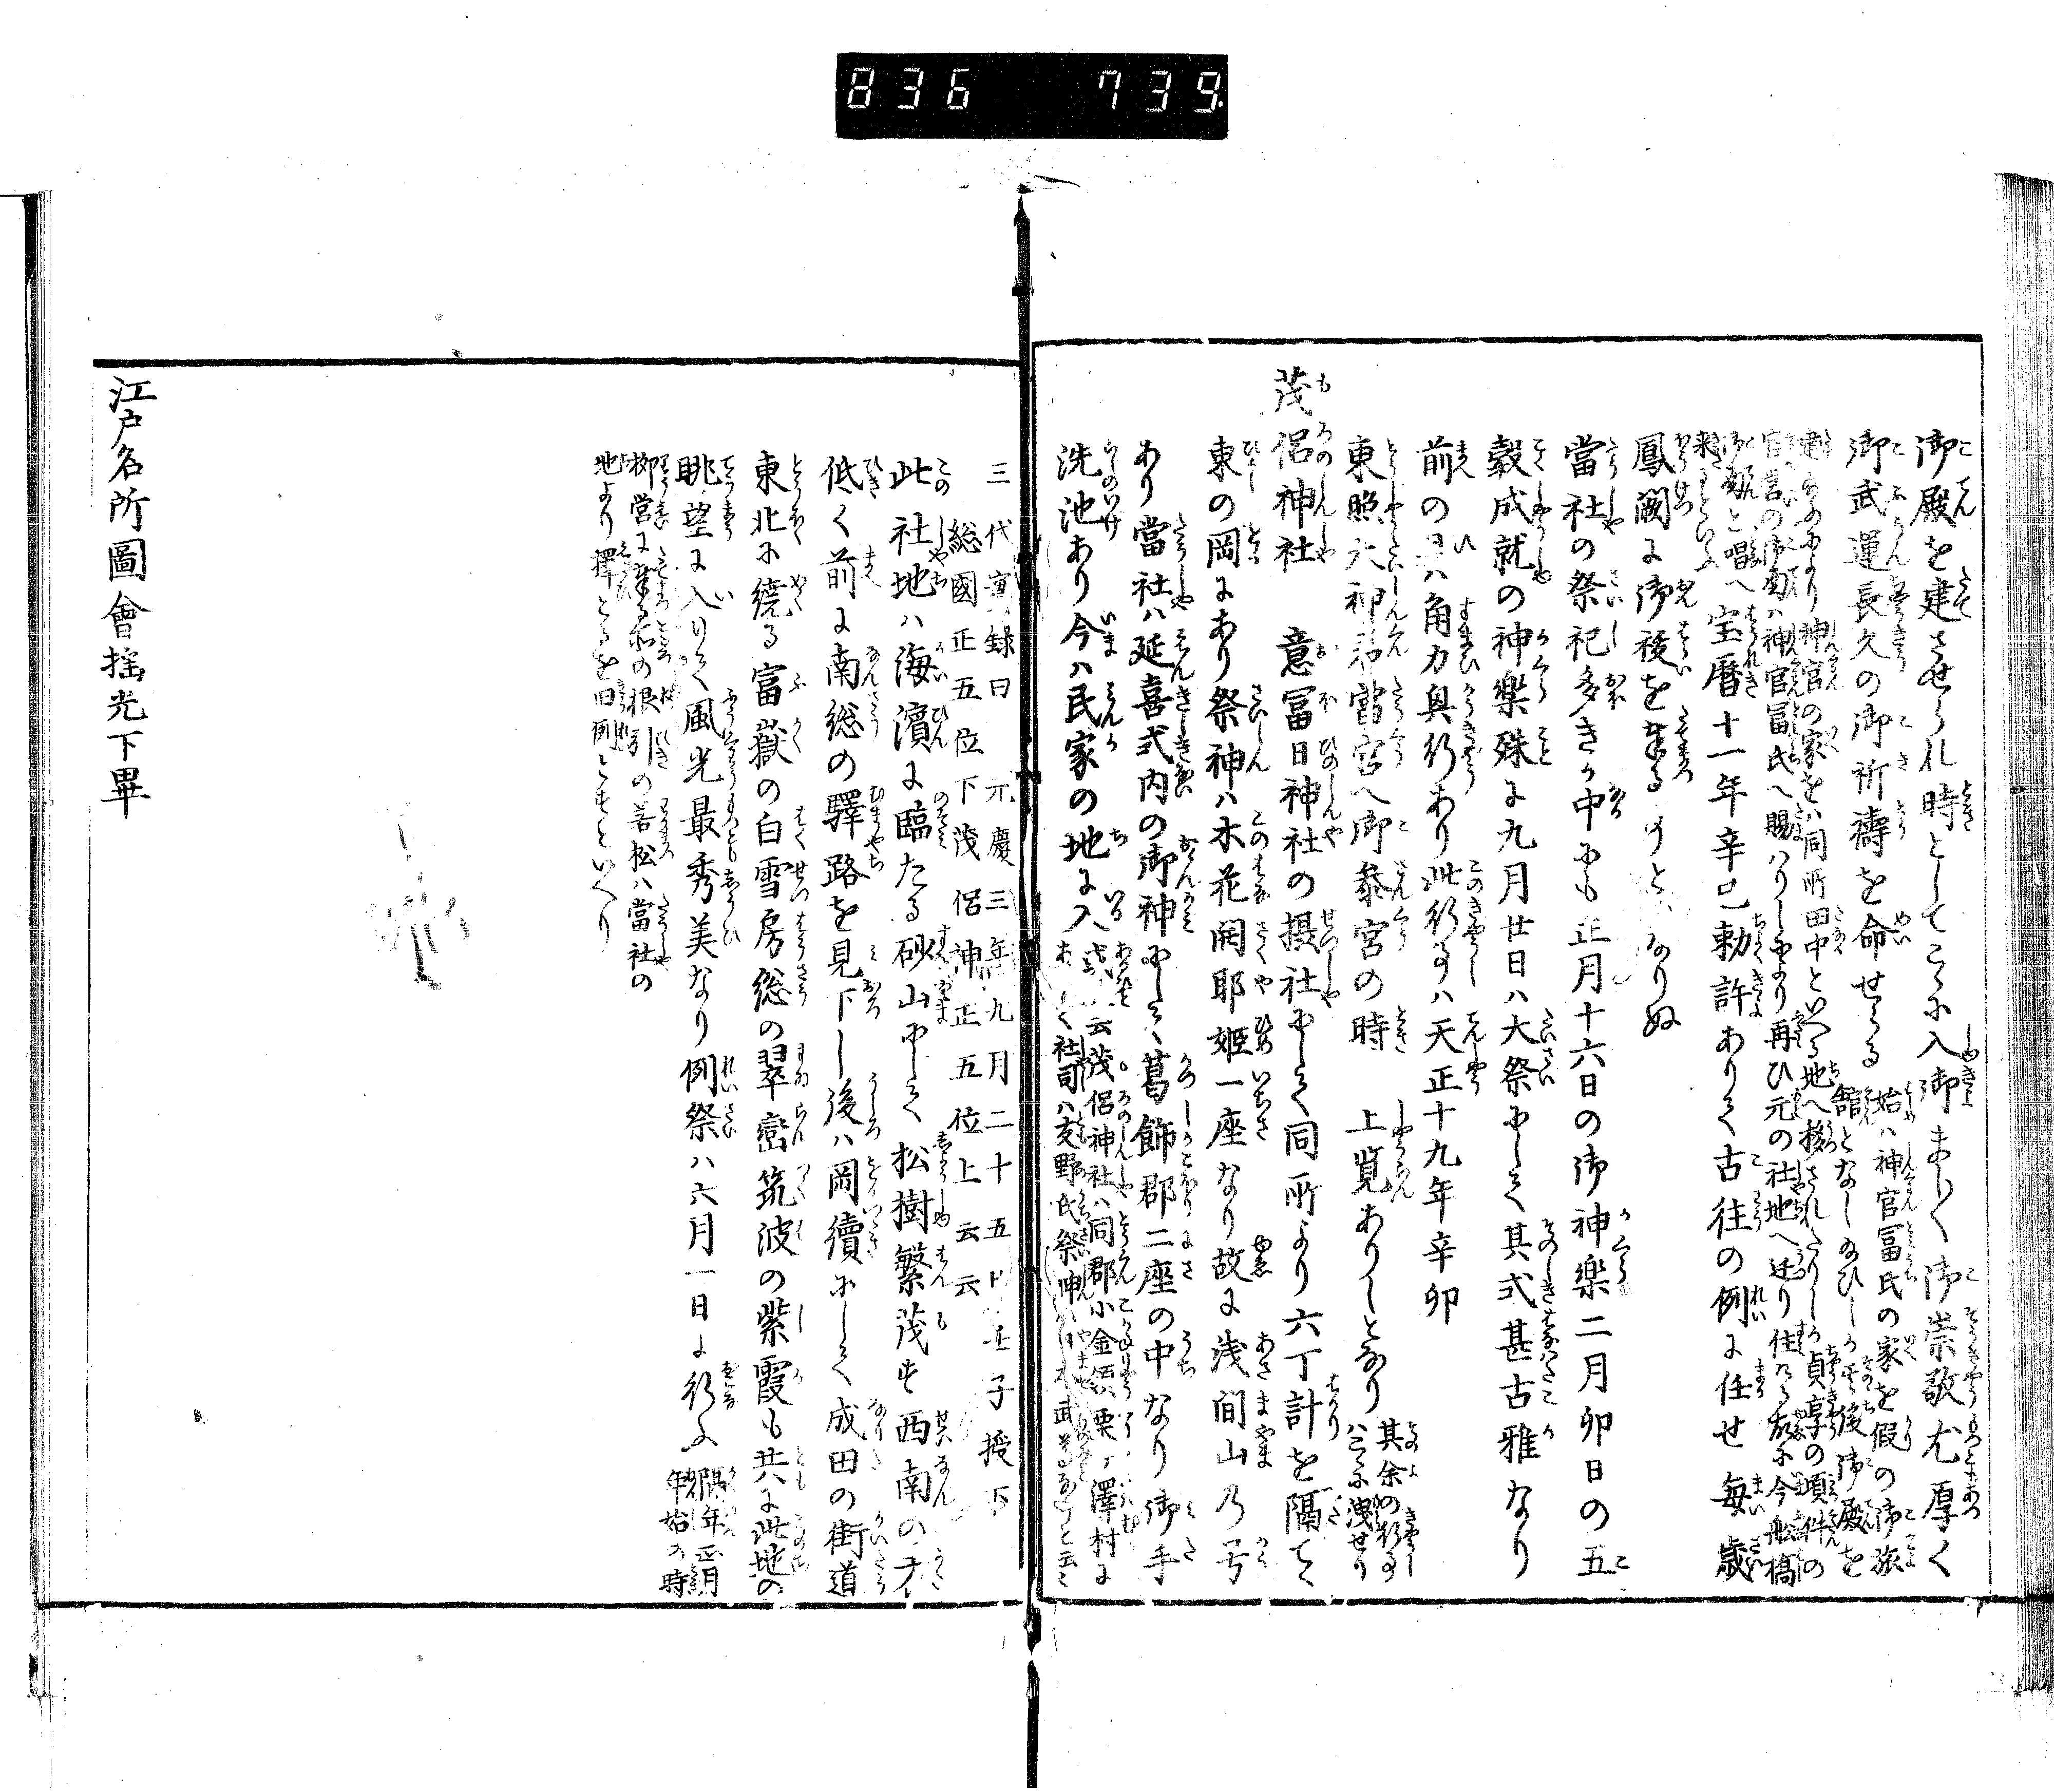 836 739.
御殿を建させられ時としてこゝに入御ましまし〳〵御崇敬尤厚く
御武運長久の御祈禱を命せらる
始ハ神官冨氏の家を假の御旅
舘となし給ひしか其後御殿を
神官の家をハ同所田中といへる地へ移されたりしか貞享の頃件の
官営の御殿ハ神官冨氏へ賜ハりしより再ひ元の社地へ辻り住る故に今舩橋
御殿と唱へ
宝暦十一年辛巳勅許ありて古往の例に任せ毎歳
鳳闕に御祓を奉る事とハなりぬ
當社の祭祀多きか中にも正月十六日の御神樂二月卯日の五
穀成就の神樂殊に九月廿日ハ大祭にして其式甚古雅なり
前の日ハ角力興行あり此行事ハ天正十九年辛卯
東照大神君當宮へ御参宮の時 上覧ありしとなり
其余の行事
ハこゝに洩せり
茂侶神社 意冨日神社の摂社にして同所より六丁計を隔て
東の岡にあり祭神ハ木花開耶姫一座なり故に浅間山乃号
あり當社ハ延喜式内の御神にして葛飾郡二座の中なり御手
洗池あり今ハ民家の地に入
云茂侶神社ハ同郡小金領栗ヶ澤村に
社司ハ友野氏祭神ハ日本武尊なりと云云
三代實録曰 元慶三年九月二十五日壬子授下
総國正五位下茂侶神正五位上云云
此社地ハ海濱に臨たる砂山にして松樹繁茂す西南の方ハ
低く前に南総の驛路を見下し後ハ岡續にして成田の街道
東北に繞る富嶽の白雪房総の翠巒筑波の紫霞も共に此地の
眺望に入りて風光最秀美なり例祭ハ六月一日に行ふ
隔年正月
年始の時
栁営に奉る所の根引の若松ハ當社の
地より擇とるを旧例とすといへり
江戸名所圖會揺光下畢